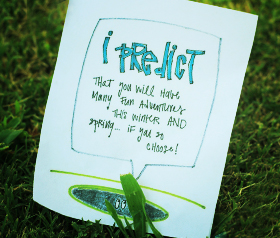 i PREDICT
THAT you will HAVE
MANY FUN ADVENTURES
THIS WINTER AND
SPRING... if you so
CHOOSE!